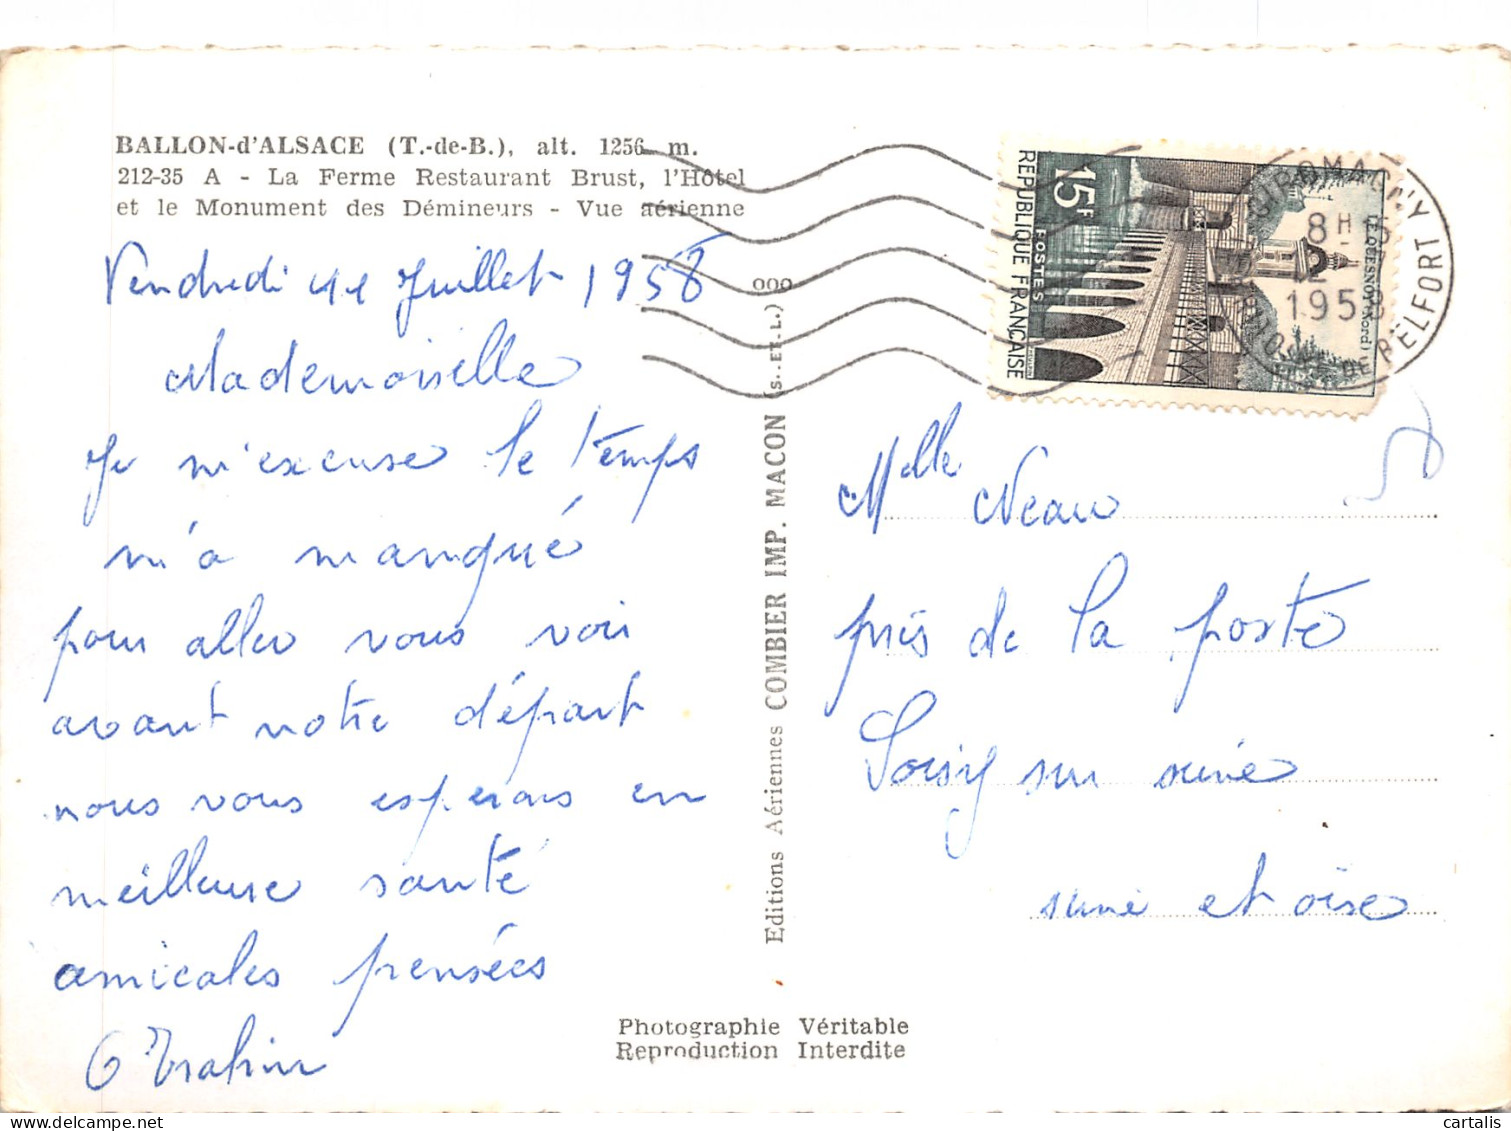 BALLON-d'ALSACE (T.-de-B.), alt. 1256 m.
212-35 A - La Ferme Restaurant Brust, l'Hôtel
et le Monument des Démineurs - Vue aérienne
Vendredi 11 Juillet 1958
Mademoiselle
Je m'excuse le temps
m'a manqué
pour aller vous voir
avant notre départ
nous vous esperons en
meilleure santé
amicales pensées
Editions Aériennes COMBIER IMP. MACON (S.-ET-L.)
REPUBLIQUE FRANÇAISE
POSTES
15F
LE QUESNOY (Nord)
GIROMAGNY
8H
12
1958
BELFORT
Mlle Neau
près de la poste
Soisy sur seine
seine et oise
Photographie Véritable
Reproduction Interdite
cartalis